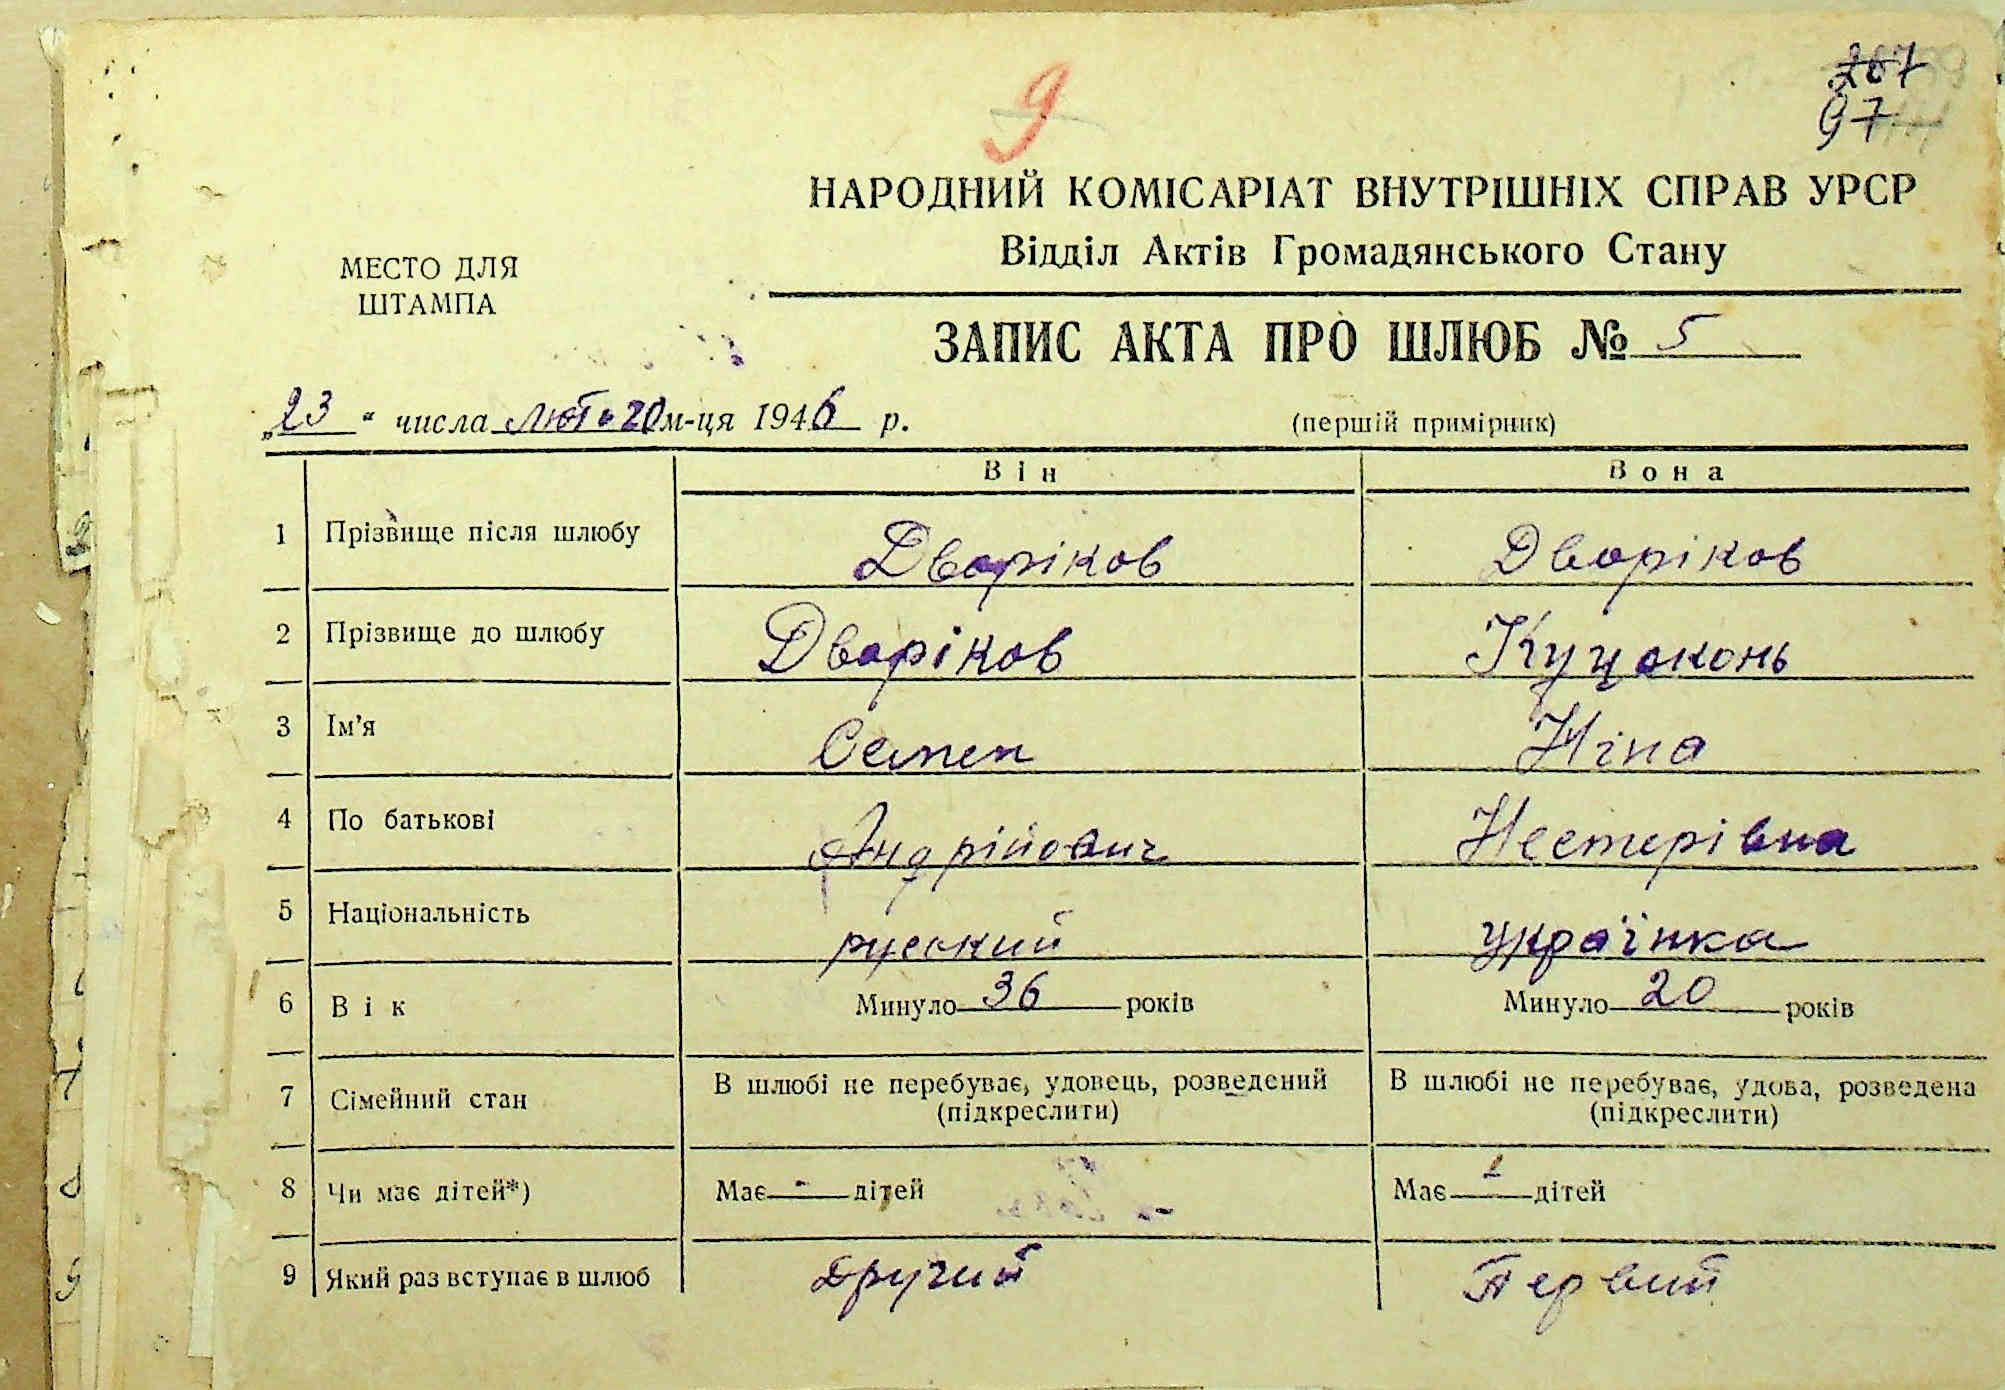 9
267
97
НАРОДНИЙ КОМІСАРІАТ ВНУТРІШНІХ СПРАВ УРСР
Відділ Актів Громадянського Стану
МЕСТО ДЛЯ
ШТАМПА
ЗАПИС АКТА ПРО ШЛЮБ № 5
„23“ числа лютого м-ця 1946 р.
(першій примірник)
Він Вона
1 Прізвище після шлюбу Дворіков Дворіков
2 Прізвище до шлюбу Дворіков Куцоконь
3 Ім'я Семен Ніна
4 По батькові Андрійович Нестерівна
5 Національність руський українка
6 Вік Минуло 36 років Минуло 20 років
7 Сімейний стан В шлюбі не перебуває, удовець, розведений В шлюбі не перебуває, удова, розведена
(підкреслити) (підкреслити)
8 Чи має дітей*) Має - дітей Має дітей
9 Який раз вступає в шлюб Другий Первий